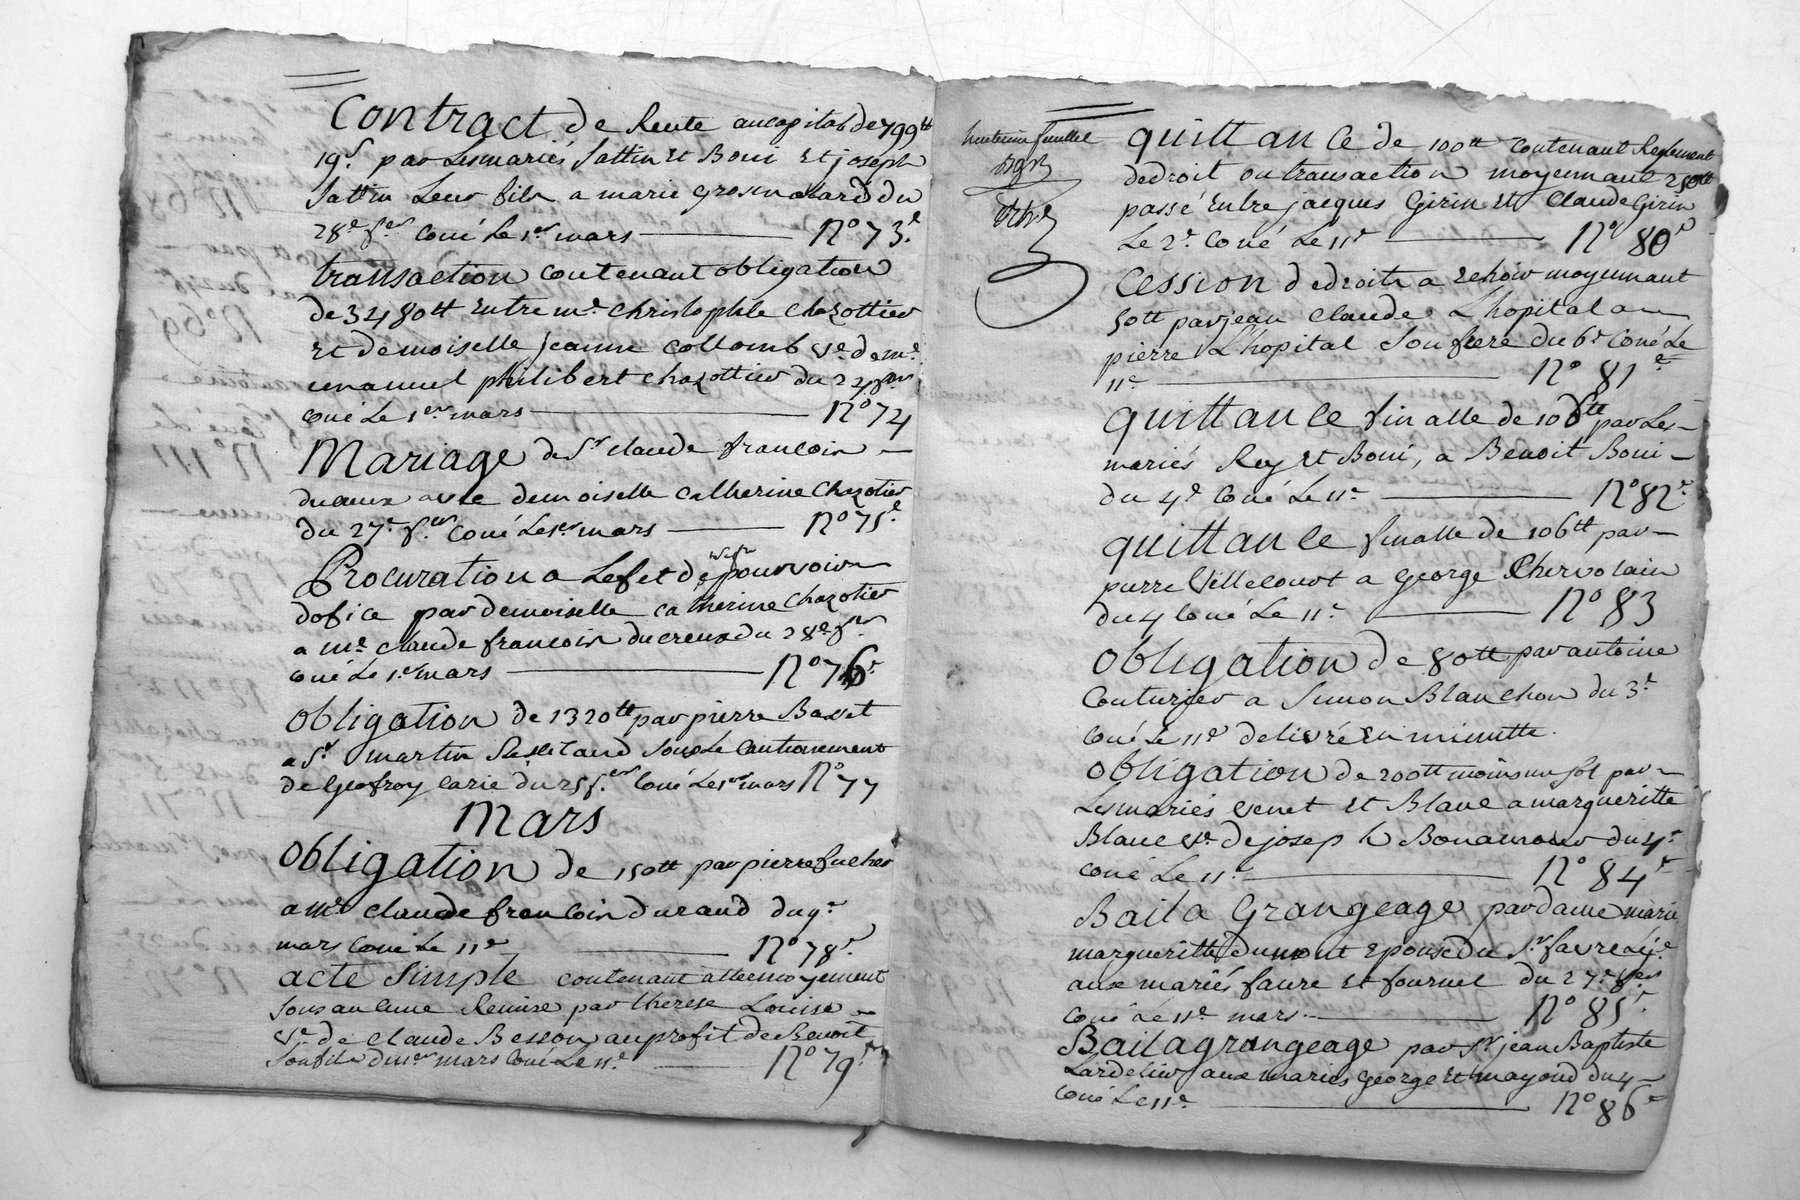 Contract de Rente au capital de 799tt
19s par Lesmariés Sattin Et Boni Et joseph
Sattin Leur fils a marie grosmolard du
28e fer Coné Le 1er mars N° 73e
transaction contenant obligation
de 3480tt Entre me christophle chazottier
Et demoiselle jeanne collomb ve de me
philibert chazottier du 24
Coné Le 1er mars N° 74
Mariage de Sr claude francois
avec demoiselle catherine chazotier
du 27e fer Coné Le 1er mars N° 75e
Procuration a Lefet de pourvoir
dofice par demoiselle catherine chazotier
a me claude francois ducreux du 28e fer
Coné Le 1er mars N° 76e
Obligation de 1320tt par pierre
a Sr martin Sous Le Cautionnement
de Geofroy Larie du 25 fer Coné Le 1er mars N° 77
Mars
Obligation de 150tt par pierre
a Me claude francois durand du 9e
mars Coné Le 11e N° 78e
acte Simple contenant attermoyement
Sans aucune Remise par therese Louise
ve de claude Besson au profit de Benoit
Son fils du 1er mars Coné Le 11e N° 79e
feuillet
quittance de 100tt contenant Reglement
de droit ou transaction moyennant 250tt
passé Entre jacques Girin Et Claude Girin
Le 2e Coné Le 11e N° 80e
Cession de droits a Echoir moyennant
50tt par jean claude L'hopital a
pierre L'hopital Son frere du 6e Coné Le
11e N° 81e
quittance finalle de par Les
mariés Rey Et Boni, a Benoit Boni
du 4e Coné Le 11e N° 82e
quittance finalle de 106tt par
pierre Villecourt a George Chervolain
du 4 Coné Le 11e N° 83
Obligation de 80tt par antoine
Couturier a Simon Blanchon du 3e
Coné Le 11e delivré En minutte.
Obligation de 200tt moins un sol par
Lesmariés venet Et Blanc a margueritte
Blanc ve de joseph du 4e
Coné Le 11e N° 84e
Bail a Grangeage par dame marie
margueritte dumont Epouse du Sr favre
aux mariés faure Et fournel du 27e fer
Coné Le 11e mars N° 85e
Bail a grangeage par Sr jean Baptiste
Lardelier aux mariés George Et mayoud du 4
Coné Le 11e N° 86e